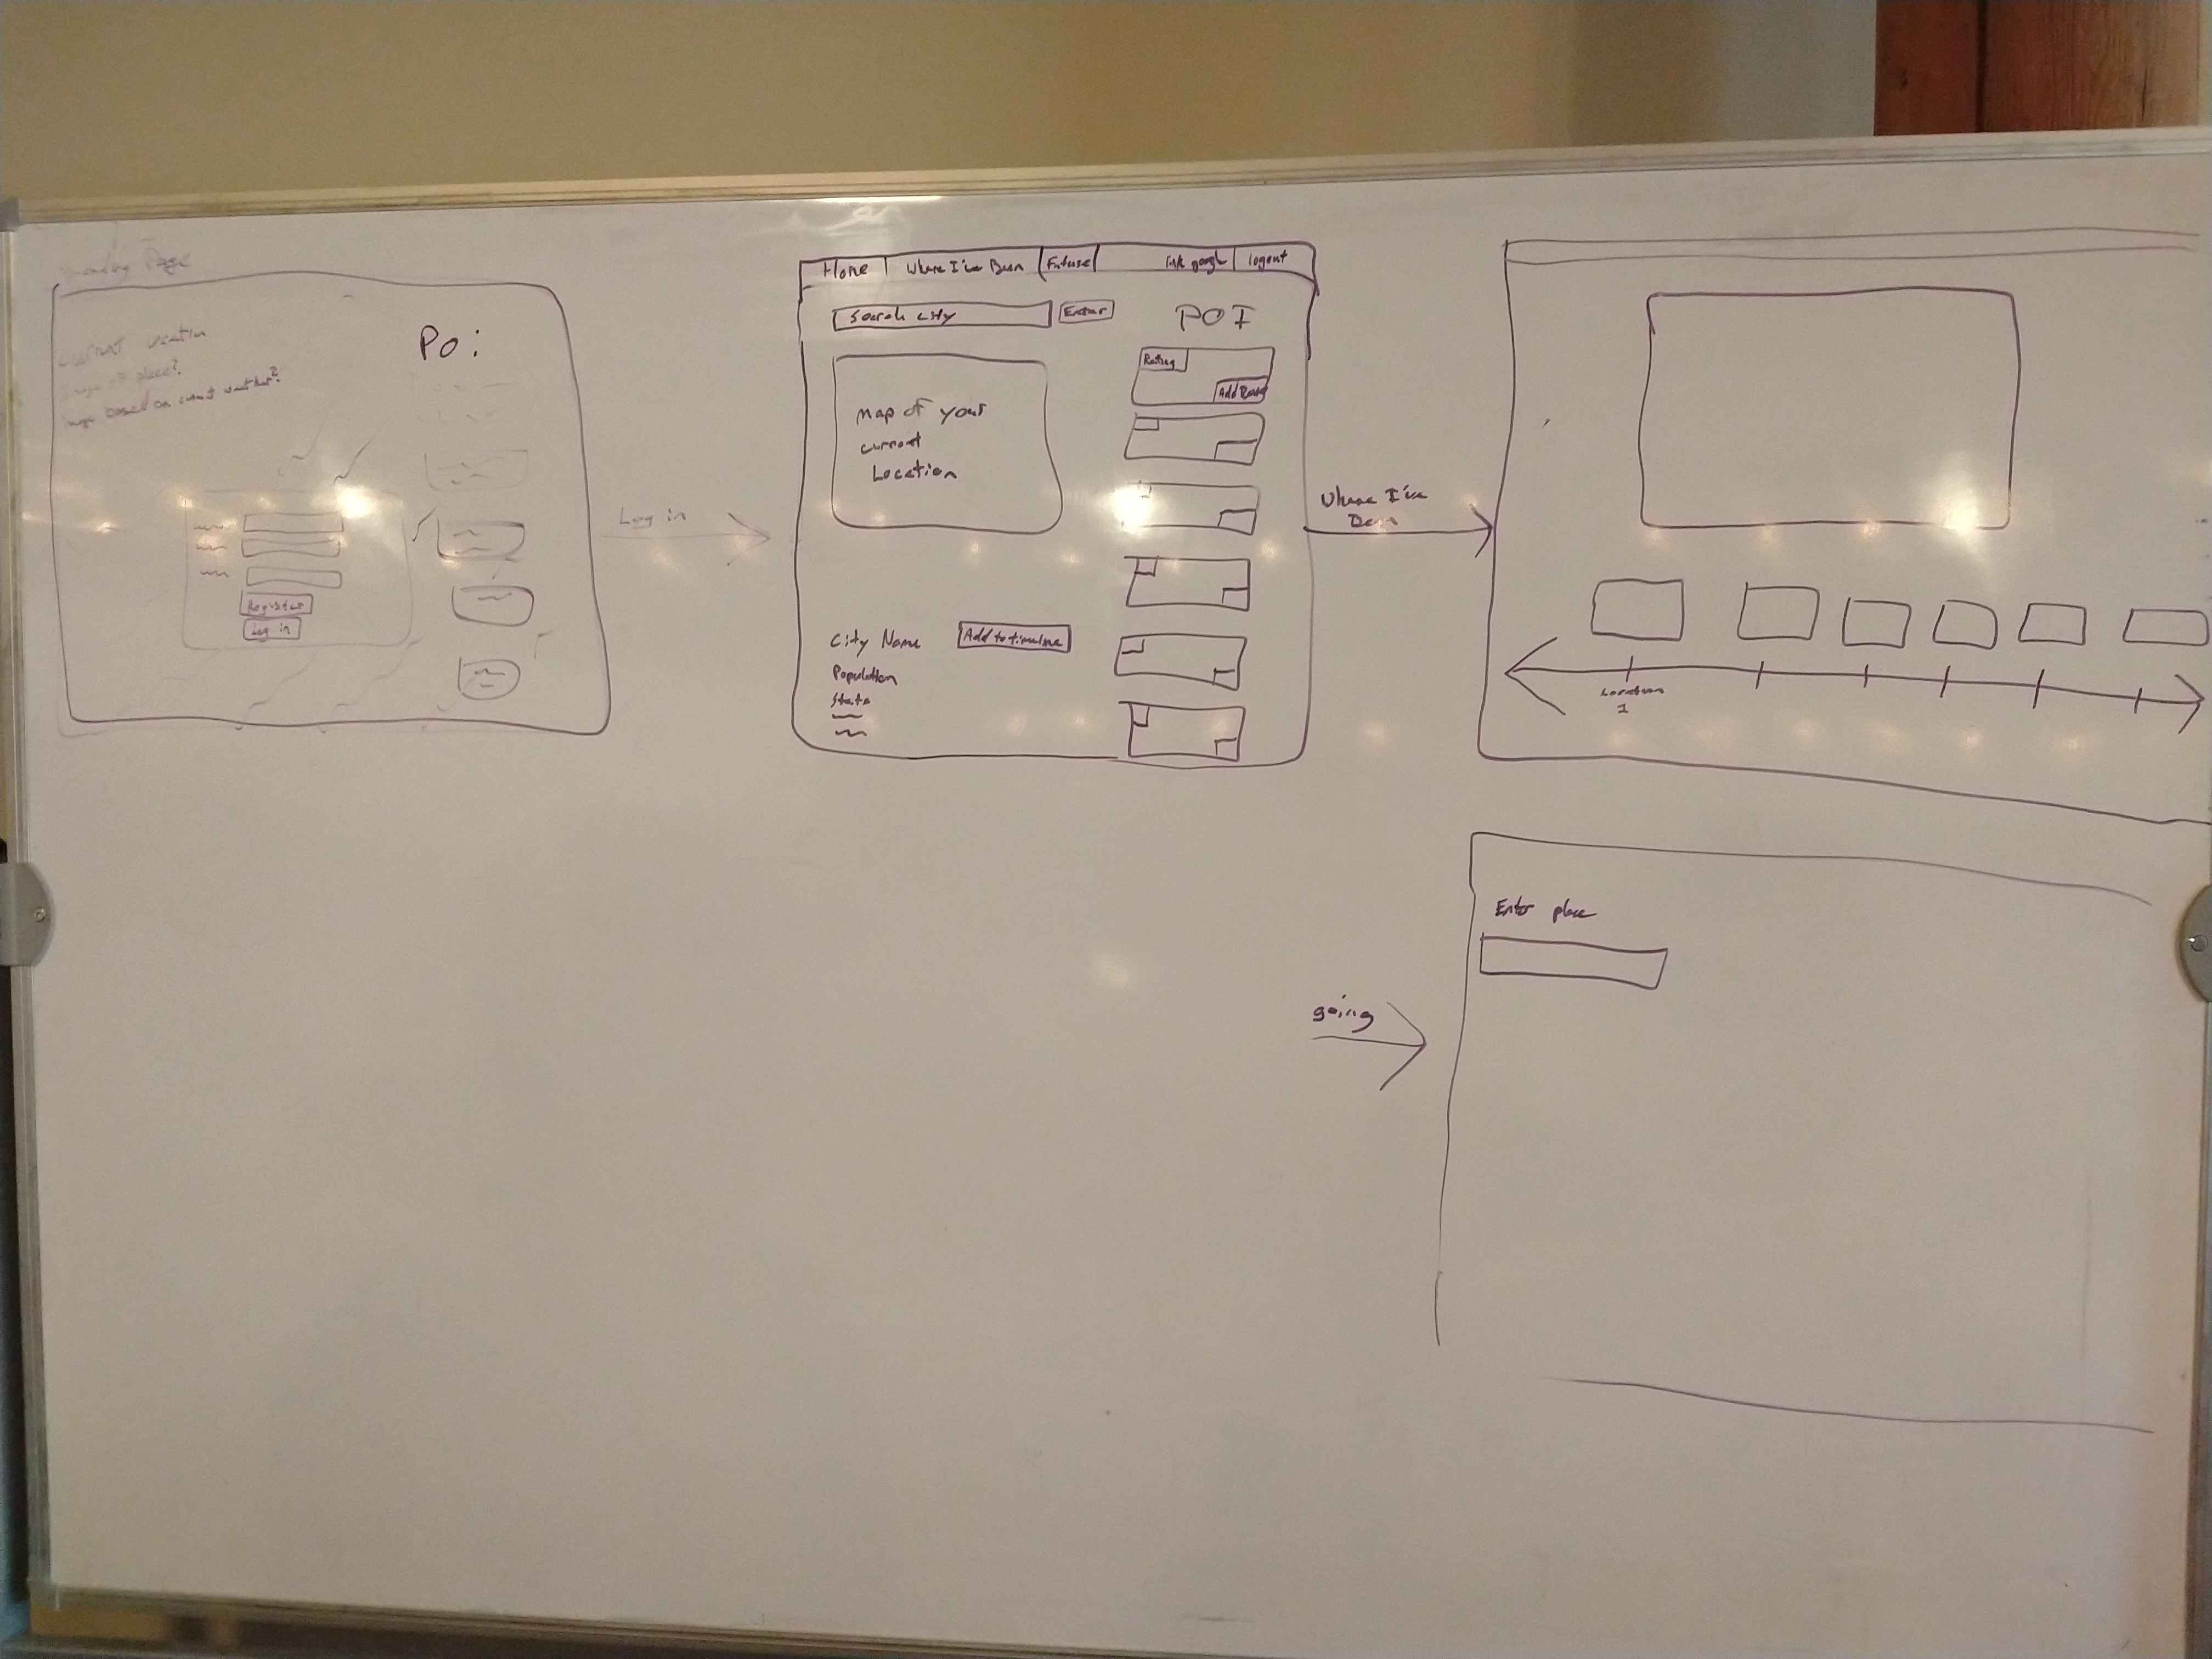 Landing Page
current location
image of place?
image based on current weather?
Poi
Register
Log in
Log in
Home
Where I've Been
Future
link google
logout
Search city
Enter
POI
Rating
Add
Map of your
current
Location
City Name
Add to timeline
Population
State
Where I've
Been
Location
1
going
Enter place